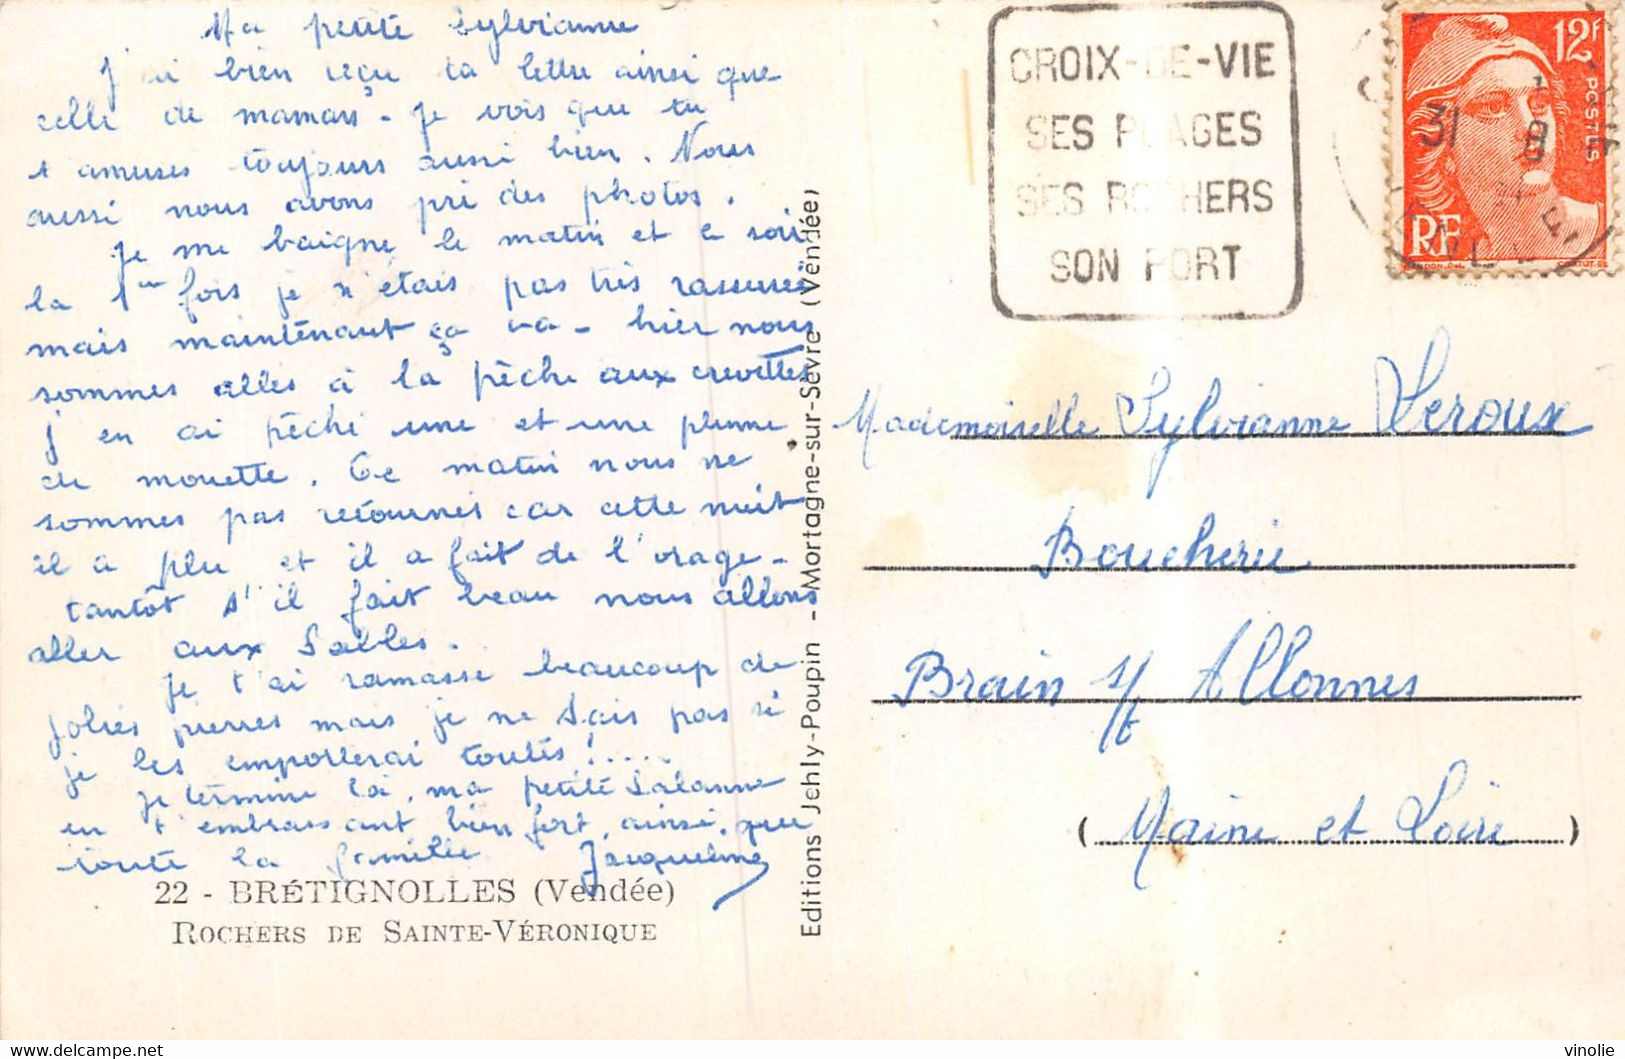 Ma petite Sylvianne
J'ai bien reçu ta lettre ainsi que
celle de maman - je vois que tu
t'amuses toujours aussi bien. Nous
aussi nous avons pri des photos.
Je me baigne le matin et le soir
la 1ère fois je n'étais pas très rassurée
mais maintenant ça va - hier nous
sommes allés à la pêche aux crevettes
j'en ai pêché une et une plume
de mouette. Ce matin nous ne
sommes pas retournés car cette nuit
il a plu et il a fait de l'orage -
tantôt s'il fait beau nous allons
aller aux Sables.
Je t'ai ramassé beaucoup de
jolies pierres mais je ne sais pas si
je les emporterai toutes !....
je termine là, ma petite
en t'embrassant bien fort, ainsi que
toute la famille Jacqueline
22 - BRÉTIGNOLLES (Vendée)
ROCHERS DE SAINTE-VÉRONIQUE
Editions Jehly-Poupin - Mortagne-sur-Sèvre (Vendée)
CROIX-DE-VIE
SES PLAGES
SES ROCHERS
SON PORT
12F
POSTES
RF
31 8
Mademoiselle Sylvianne Leroux
Boucherie
Brain s/ Allonnes
(Maine et Loire)
delcampe.net
vinolie